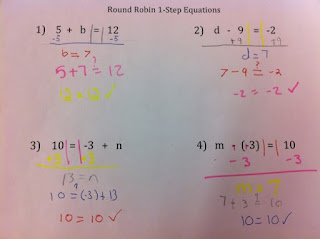 Round Robin 1-Step Equations
1) 5 + b = 12
-5 -5
b = 7
5 + 7 ≟ 12
12 = 12 ✓
2) d - 9 = -2
+9 +9
d = 7
7 - 9 ≟ -2
-2 = -2 ✓
3) 10 = -3 + n
+3 +3
13 = n
10 ≟ (-3) + 13
10 = 10 ✓
4) m + (+3) = 10
- 3 -3
m = 7
7 + 3 ≟ 10
10 = 10 ✓